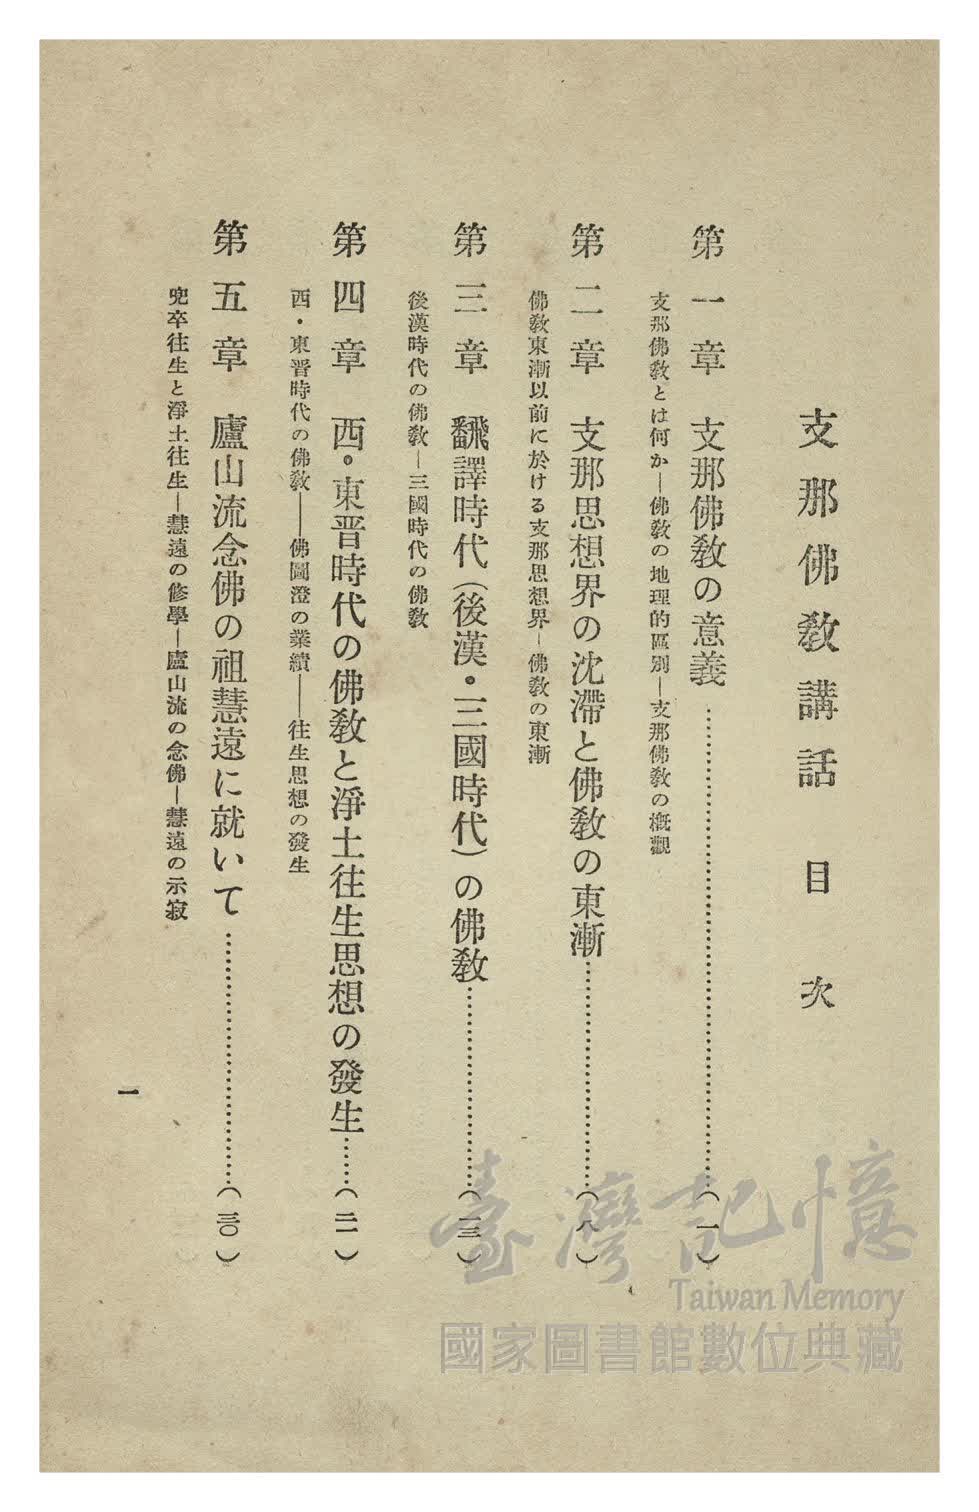 支那佛教講話 目次
第一章 支那佛教の意義………(一)
支那佛教とは何か―佛教の地理的區別―支那佛教の概觀
第二章 支那思想界の沈滯と佛教の東漸………(八)
佛教東漸以前に於ける支那思想界―佛教の東漸
第三章 飜譯時代(後漢・三國時代)の佛教………(一三)
後漢時代の佛教―三國時代の佛教
第四章 西・東晋時代の佛教と淨土往生思想の發生……(二一)
西・東晋時代の佛教――佛圖澄の業績――往生思想の發生
第五章 廬山流念佛の祖慧遠に就いて………(三〇)
兜卒往生と淨土往生―慧遠の修學―廬山流の念佛―慧遠の示寂
一
臺灣記憶
Taiwan Memory
國家圖書館數位典藏